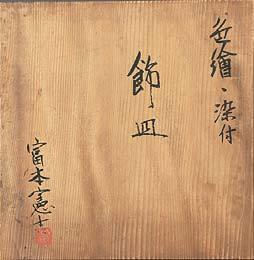 繪、染付
飾皿
富本憲吉